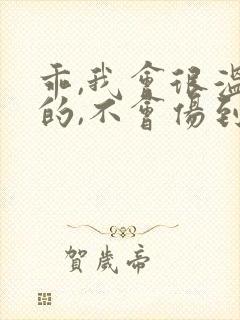 乖,我會很溫
的,不會傷到
賀歲帝